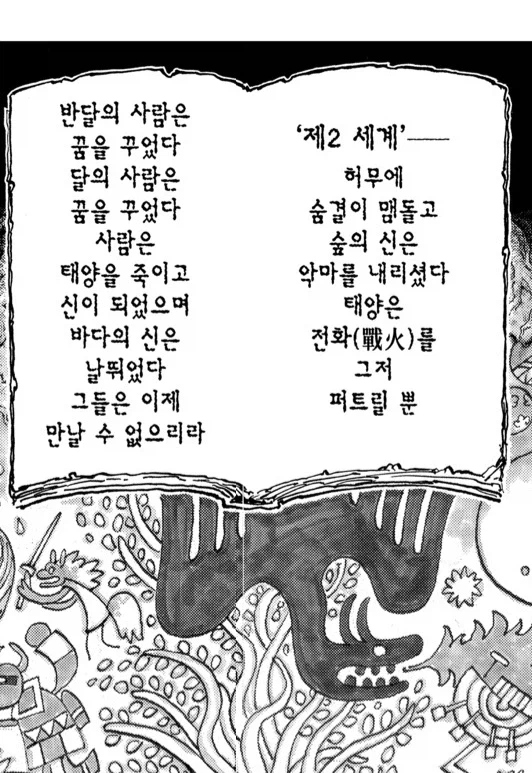 '제2 세계'──
허무에
숨결이 맴돌고
숲의 신은
악마를 내리셨다
태양은
전화(戰火)를
그저
퍼트릴 뿐
반달의 사람은
꿈을 꾸었다
달의 사람은
꿈을 꾸었다
사람은
태양을 죽이고
신이 되었으며
바다의 신은
날뛰었다
그들은 이제
만날 수 없으리라